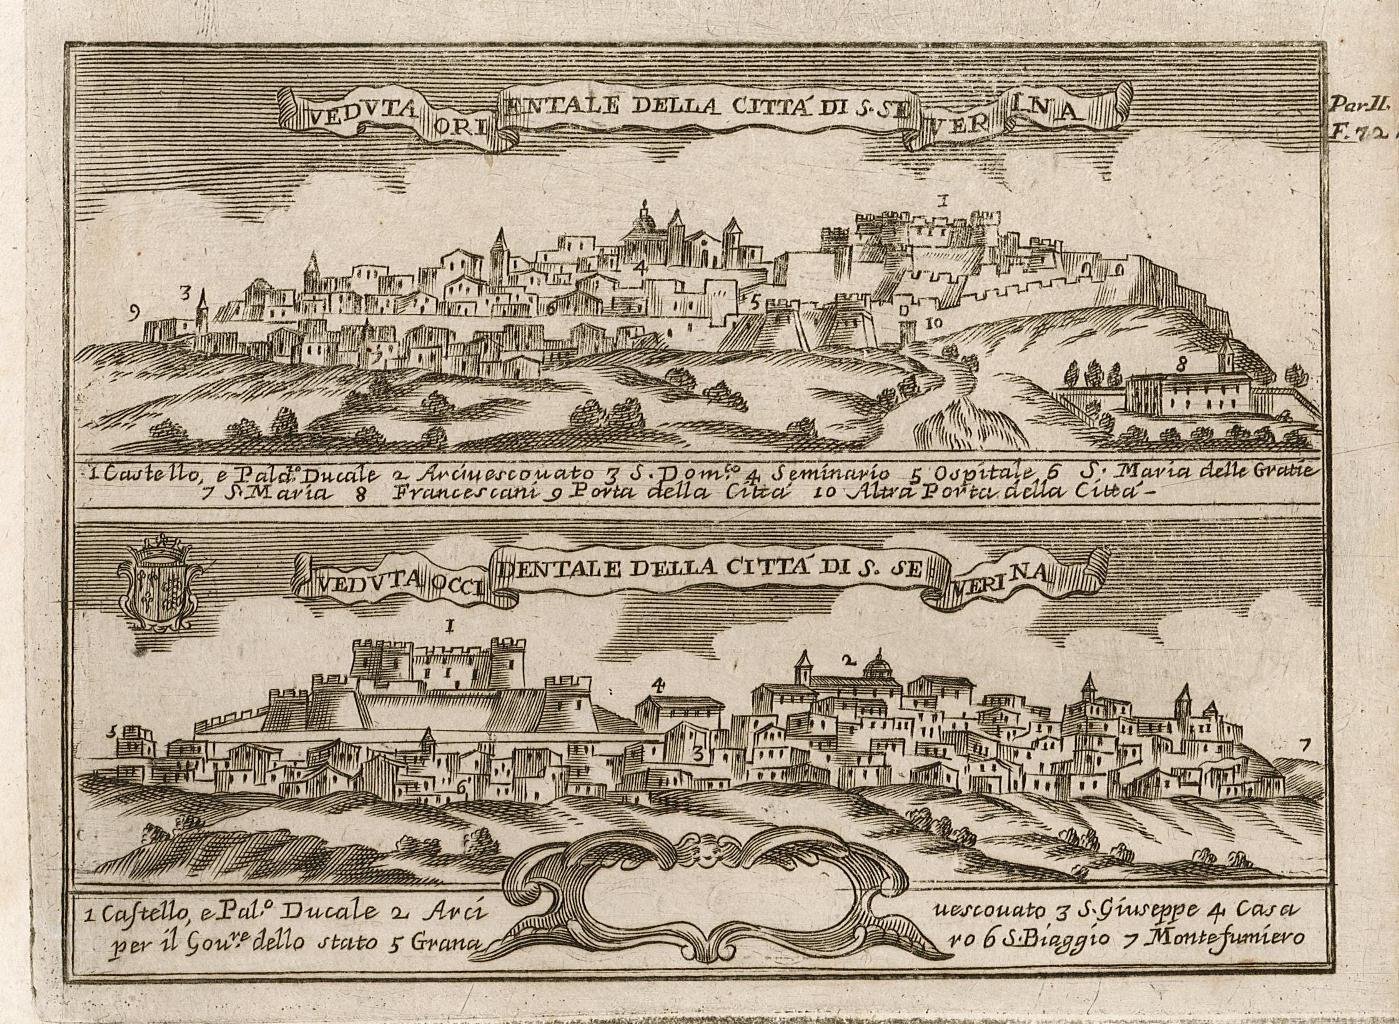 VEDVTA ORIENTALE DELLA CITTÁ DI S. SEVERINA
Par. II.
F. 72
1
4
3
9
5
6
10
7
8
1 Castello, e Pala.to Ducale 2 Arciuescouato 3 S. Dom.co 4 Seminario 5 Ospitale 6 S. Maria delle Gratie
7 S. Maria 8 Francescani 9 Porta della Città 10 Altra Porta della Città -
VEDVTA OCCIDENTALE DELLA CITTÁ DI S. SEVERINA
1
2
4
5
3
7
6
1 Castello, e Pal.o Ducale 2 Arciuescouato 3 S. Giuseppe 4 Casa
per il Gou.re dello stato 5 Granaro 6 S. Biaggio 7 Montefumiero